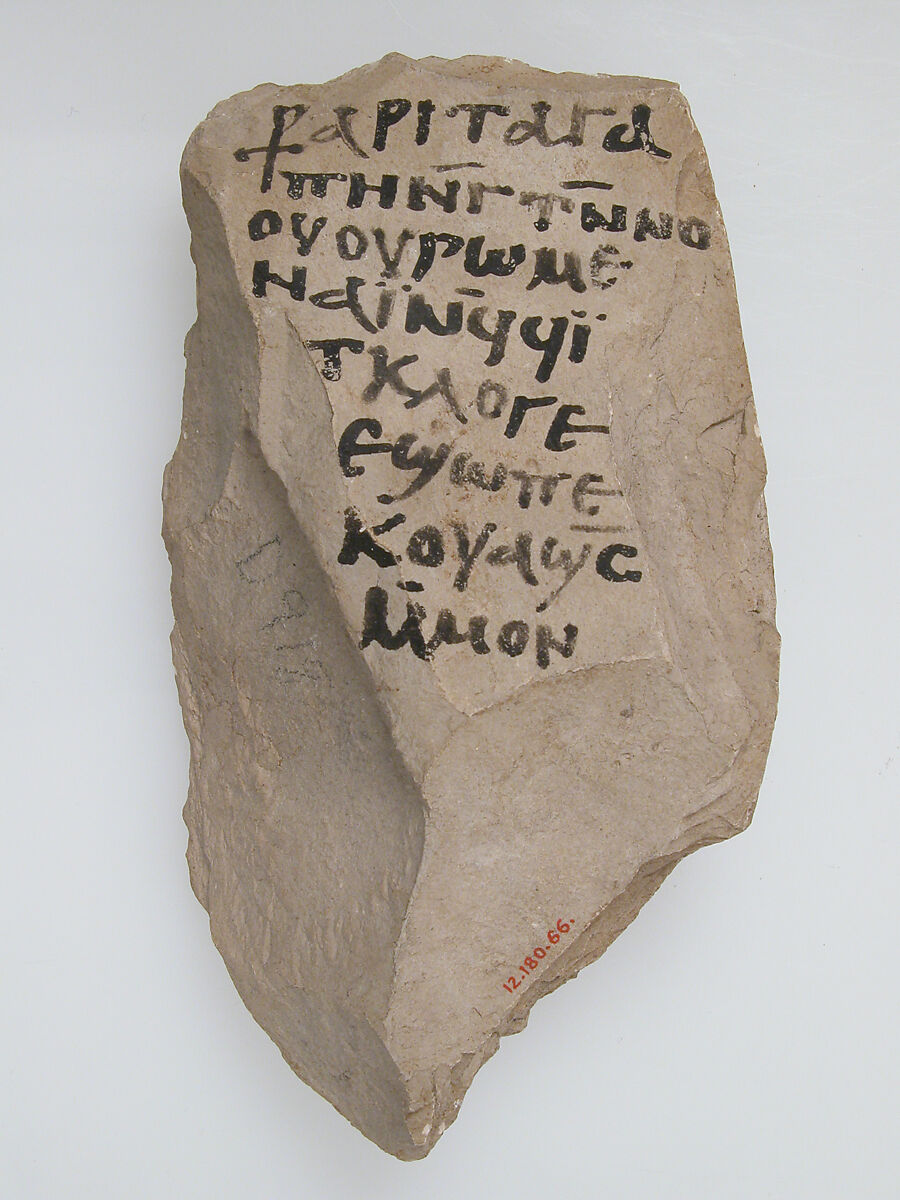 ⳨ ⲁⲣⲓⲧⲁⲅⲁ
ⲡⲏⲛ̄ⲅⲧⲛ̄ⲛⲟ
ⲟⲩⲟⲩⲣⲱⲙⲉ
ⲛⲁⲓ̈ⲛ̄ϥϥⲓ̈
ⲧⲕⲗⲟⲅⲉ
ⲉϣⲱⲡⲉ
ⲕⲟⲩⲁϣⲥ̄
ⲙ̄ⲙⲟⲛ
12.180.66.